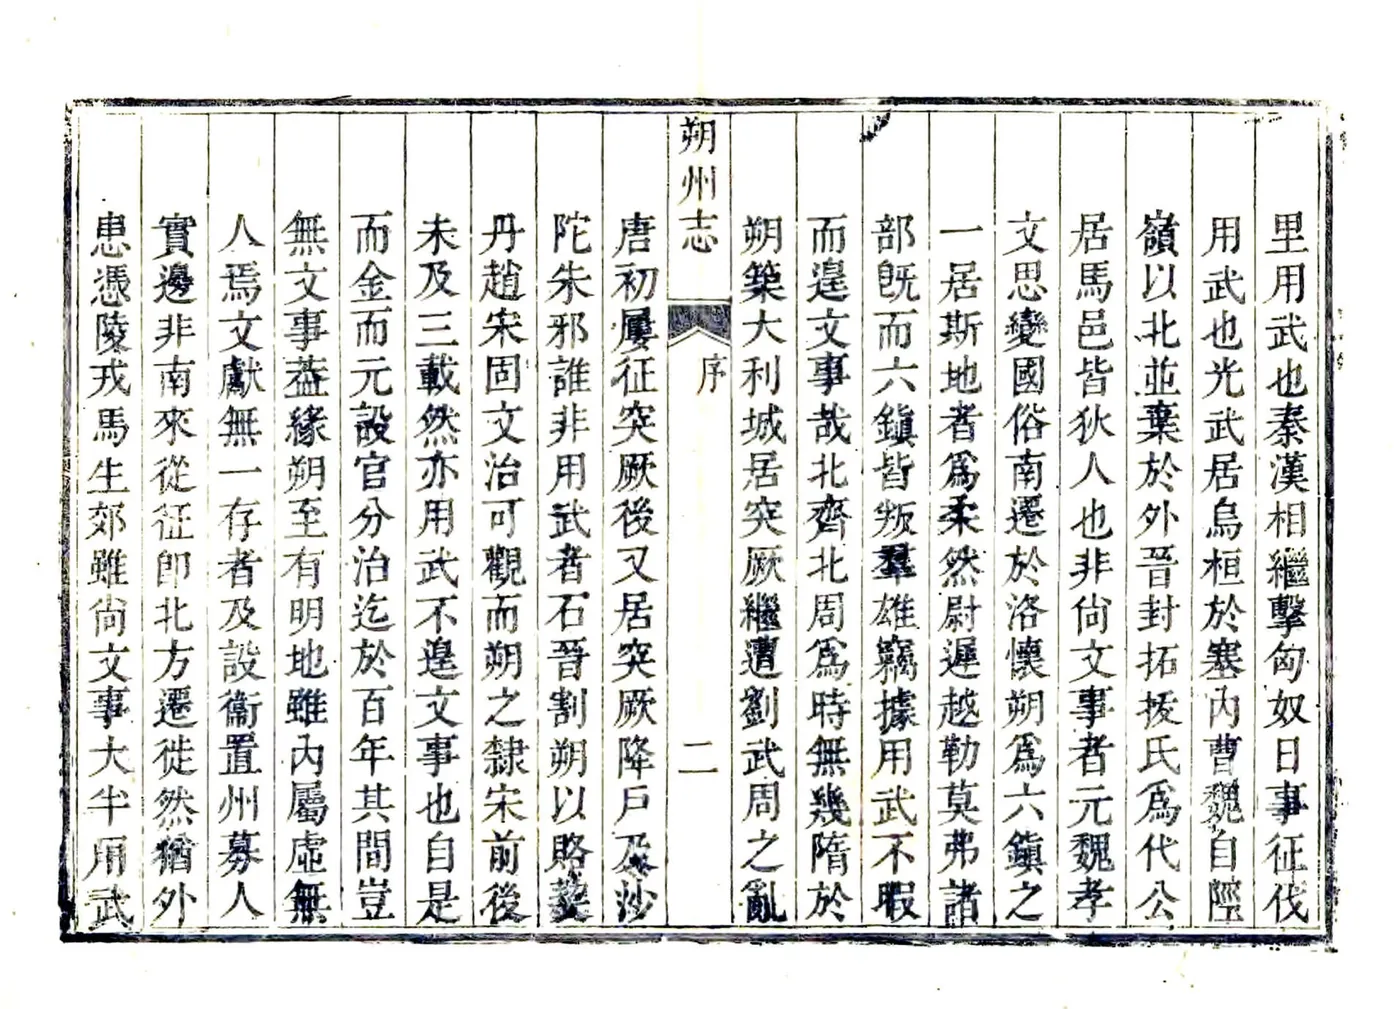 里用武也秦漢相繼擊匈奴日事征伐
用武也光武居烏桓於塞內曹魏自陘
嶺以北並棄於外晉封拓拔氏爲代公
居馬邑皆狄人也非尙文事者元魏孝
文思變國俗南遷於洛懷朔爲六鎭之
一居斯地者爲柔然尉遲越勒莫弗諸
部旣而六鎭皆叛羣雄竊據用武不暇
而遑文事哉北齊北周爲時無幾隋於
朔築大利城居突厥繼遭劉武周之亂
朔州志
序
二
唐初屢征突厥後又居突厥降戶及沙
陀朱邪誰非用武者石晉割朔以賂契
丹趙宋固文治可觀而朔之隸宋前後
未及三載然亦用武不遑文事也自是
而金而元設官分治迄於百年其間豈
無文事葢緣朔至有明地雖內屬虛無
人焉文獻無一存者及設衞置州募人
實邊非南來從征卽北方遷徙然猶外
患憑陵戎馬生郊雖尙文事大半用武